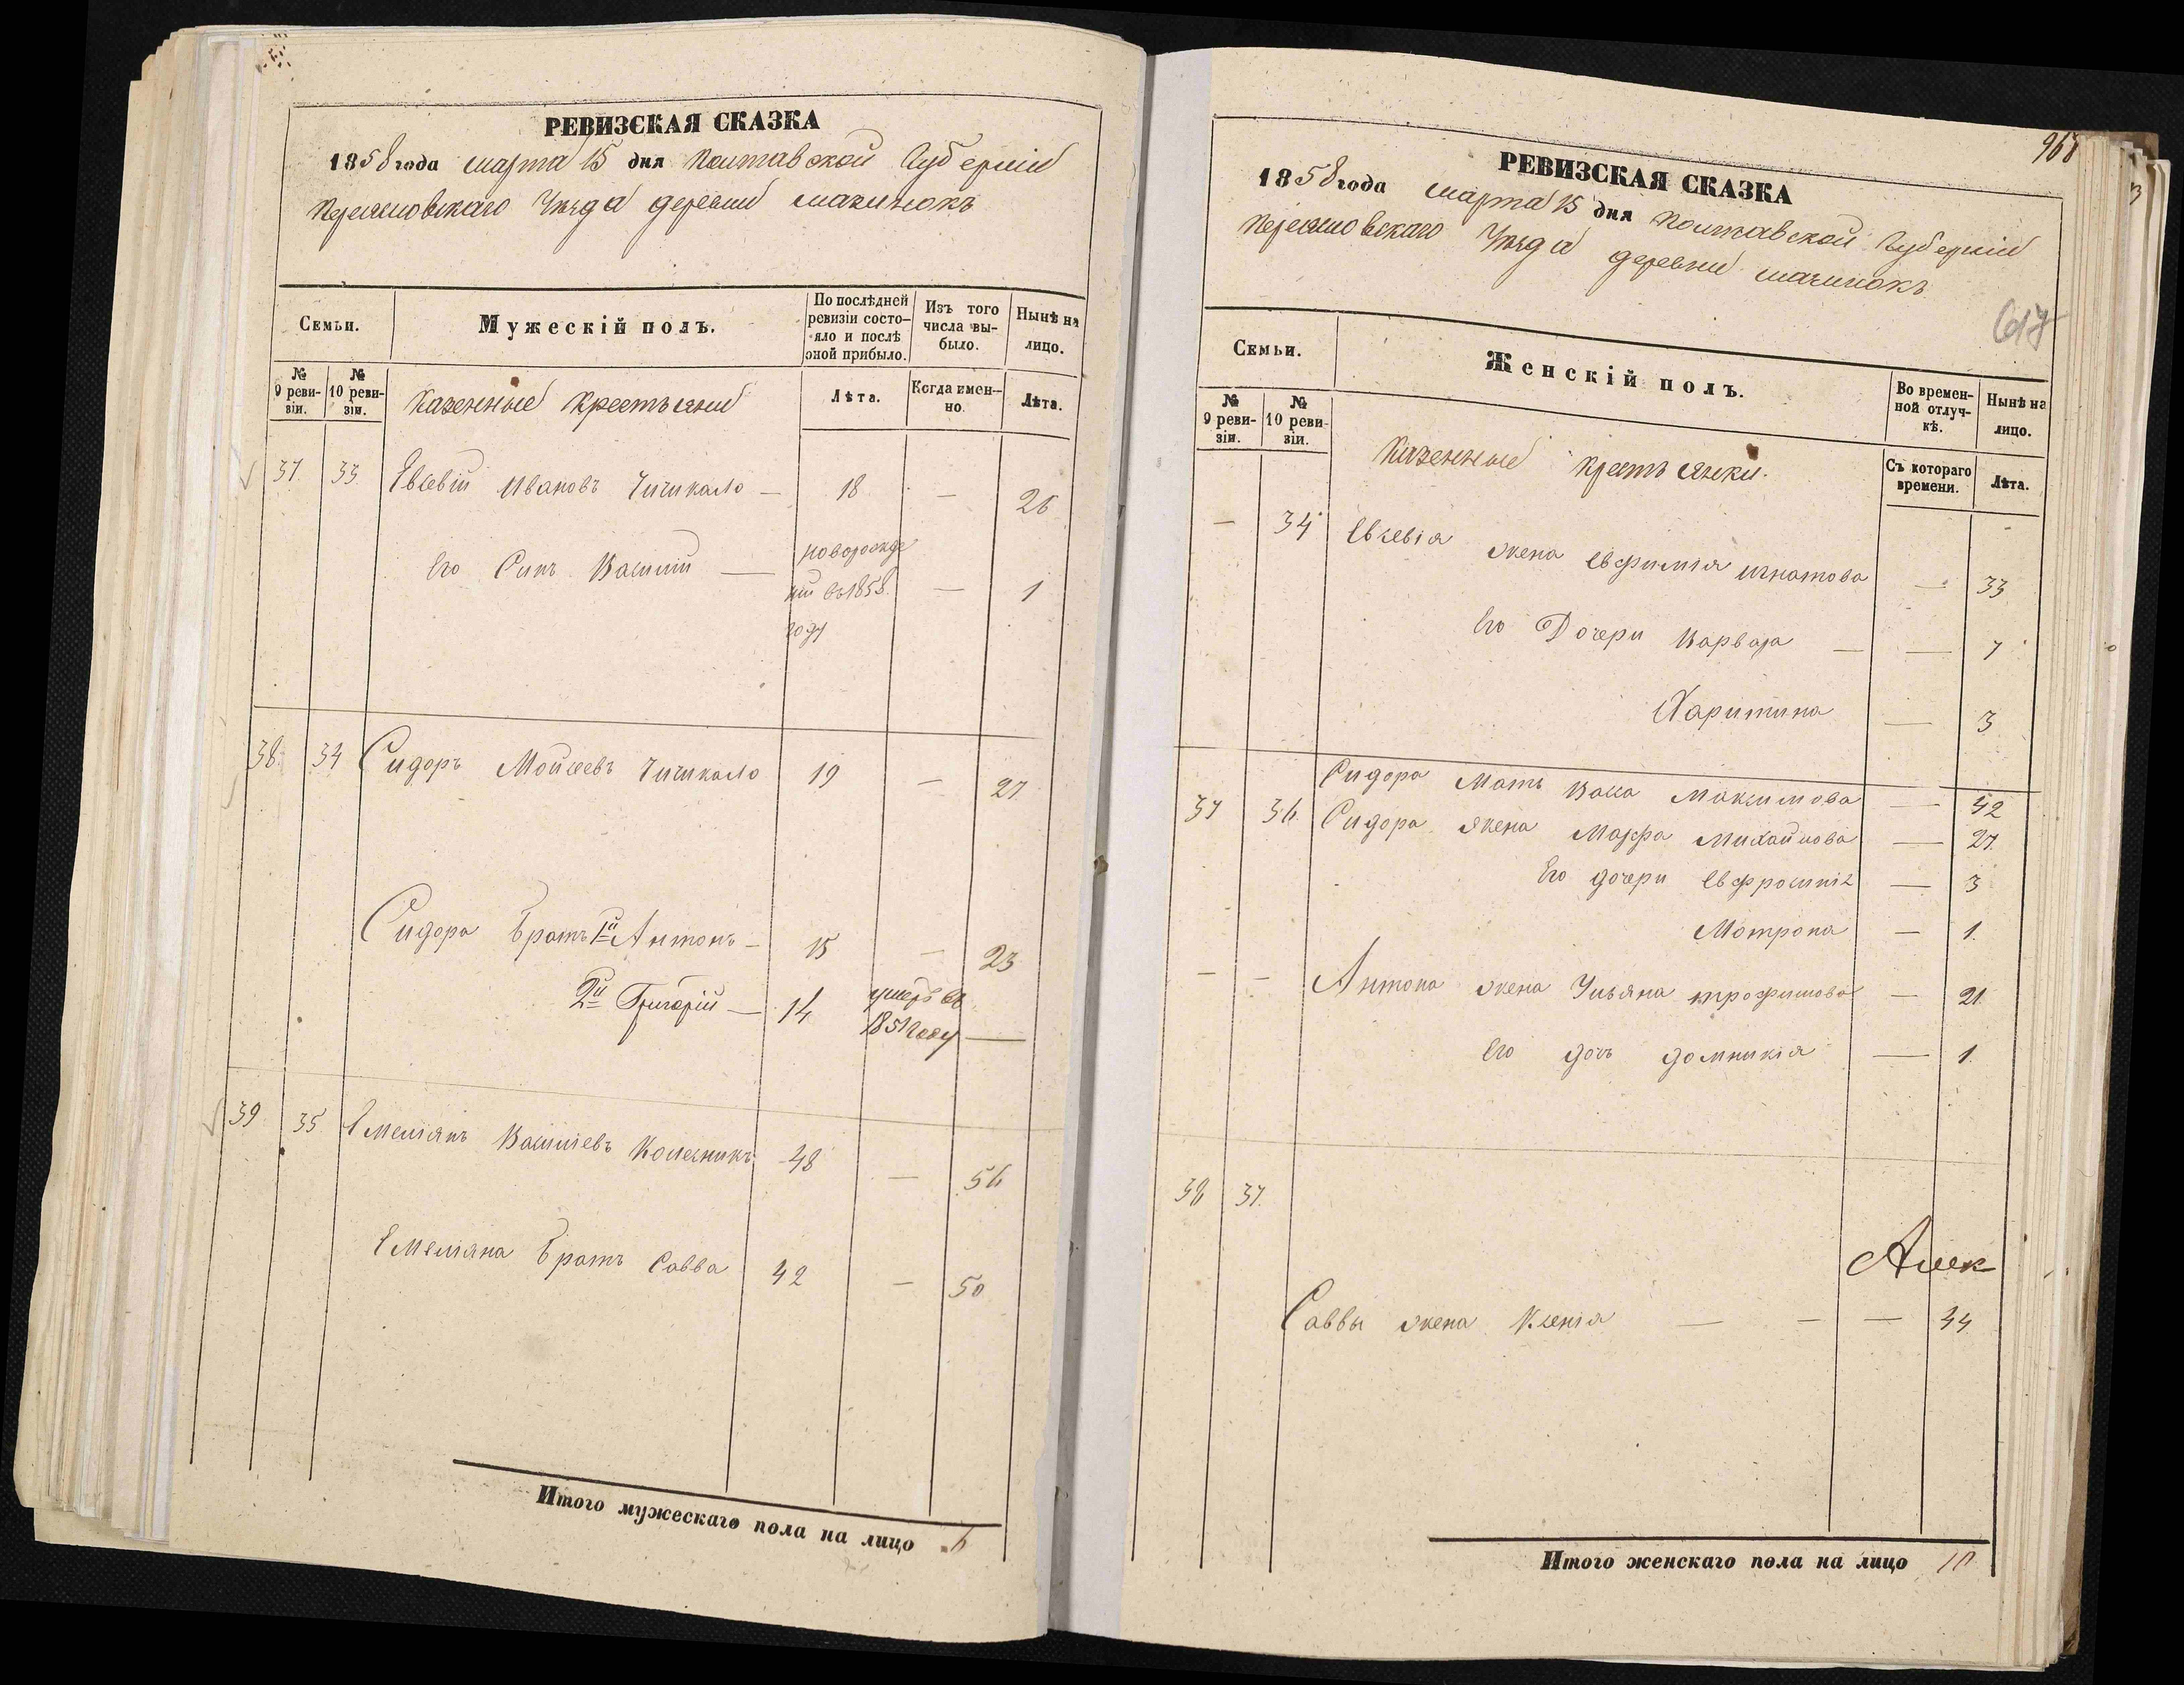 РЕВИЗСКАЯ СКАЗКА
1858 года марта 15 дня Полтавской Губерніи
Переяславскаго Уезда деревни
Семьи.
Мужескій полъ.
По послѣдней ревизіи состо-
яло и послѣ
оной прибыло.
Изъ того
числа вы-
было.
Нынѣ на
лицо.
№
9 реви-
зіи.
№
10 реви-
зіи.
Казенные Крестьяни
Лѣта.
Когда имен-
но.
Лѣта.
37 33 Евсевій Ивановъ Чичикало — 18 — 26
Его Сынъ Василій — новорожде
ній въ 1858 — 1
году
38 34 Сидоръ Мойсеевъ Чичикало 19 — 27
Сидора Братъ 1й Антонъ — 15 — 23
2й Григорій — 14 умеръ въ
1851 году —
39 35 Емеліянъ Василіевъ Колесникъ 48 — 56
Емеліяна Братъ Савва 42 — 50
Итого мужескаго пола на лицо 6
968
РЕВИЗСКАЯ СКАЗКА
1858 года марта 15 дня Полтавской Губерніи
Переяславскаго Уезда деревни
617
Семьи.
Женскій полъ.
Во времен-
ной отлуч-
кѣ.
Нынѣ на
лицо.
№
9 реви-
зіи.
№
10 реви-
зіи.
Казенные Крестьянки.
Съ котораго
времени.
Лѣта.
— 34 Евсевія жена Евфимія Игнатова — 33
Его Дочери Варвара — — 7
Харитина — 3
Сидора Мать Васса Максимова — 42
37 36 Сидора жена Марфа Михайлова — 27
Его дочери Евфросинія — 3
Мотрона — 1
— — Антона жена Ульяна Трофимова — 21
Его дочь Домникія — 1
38 37
Алек
Саввы жена Ксенія — — — 44
Итого женскаго пола на лицо 10